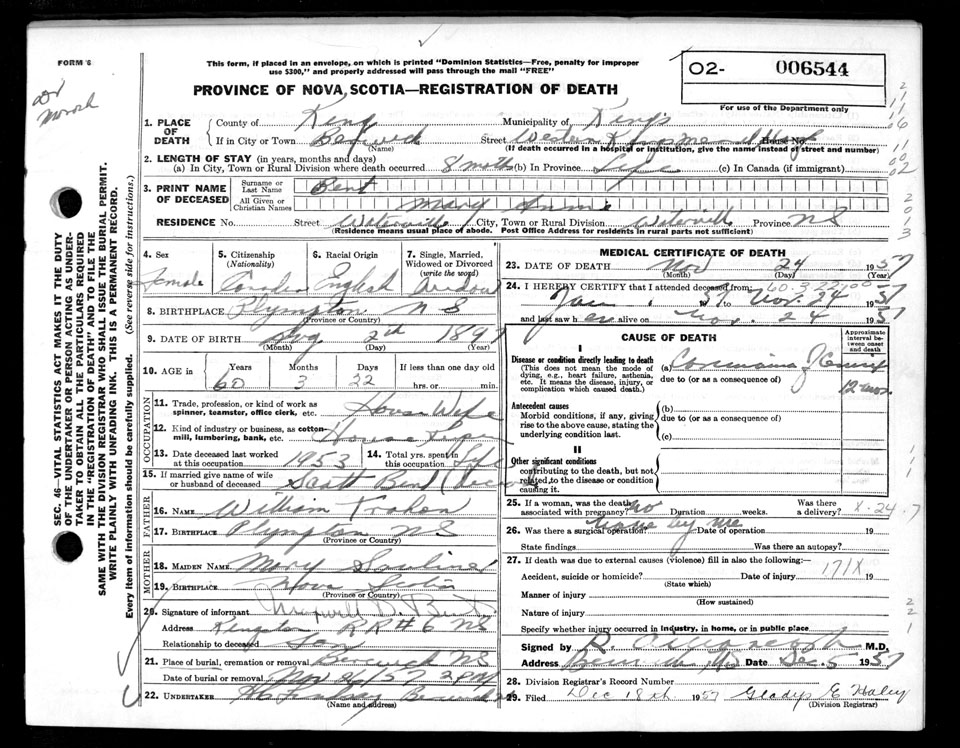 FORM 6
This form, if placed in an envelope, on which is printed "Dominion Statistics—Free, penalty for improper
use $300," and properly addressed will pass through the mail "FREE"
PROVINCE OF NOVA SCOTIA—REGISTRATION OF DEATH
O2- 006544
For use of the Department only
Dr
SEC. 46—VITAL STATISTICS ACT MAKES IT THE DUTY
OF THE UNDERTAKER OR PERSON ACTING AS UNDER-
TAKER TO OBTAIN ALL THE PARTICULARS REQUIRED
IN THE "REGISTRATION OF DEATH" AND TO FILE THE
SAME WITH THE DIVISION REGISTRAR WHO SHALL ISSUE THE BURIAL PERMIT.
WRITE PLAINLY WITH UNFADING INK. THIS IS A PERMANENT RECORD.
Every item of information should be carefully supplied. (See reverse side for instructions.)
1. PLACE OF DEATH County of Kings Municipality of Kings
If in City or Town Berwick Street Western Kings Memorial Hosp House No.
(Name) (If death occurred in a hospital or institution, give the name instead of street and number)
2. LENGTH OF STAY (in years, months and days)
(a) In City, Town or Rural Division where death occurred 8 moths (b) In Province Life (c) In Canada (if immigrant)
3. PRINT NAME OF DECEASED Surname or Last Name Bent
All Given or Christian Names Mary Annie
RESIDENCE No. Street Waterville City, Town or Rural Division Waterville Province NS
(Residence means usual place of abode. Post Office Address for residents in rural parts not sufficient)
4. Sex Female
5. Citizenship (Nationality) Canadian
6. Racial Origin English
7. Single, Married, Widowed or Divorced (write the word) Widow
8. BIRTHPLACE Plympton NS
(Province or Country)
9. DATE OF BIRTH Aug 2nd 1897
(Month) (Day) (Year)
10. AGE in Years 60 Months 3 Days 22 If less than one day old
hrs. or min.
OCCUPATION
11. Trade, profession, or kind of work as
spinner, teamster, office clerk, etc. House Wife
12. Kind of industry or business, as cotton-
mill, lumbering, bank, etc. House
13. Date deceased last worked
at this occupation 1953
14. Total yrs. spent in
this occupation Life
15. If married give name of wife
or husband of deceased Scott Bent
FATHER
16. NAME William
17. BIRTHPLACE Plympton NS
(Province or Country)
MOTHER
18. MAIDEN NAME Mary
19. BIRTHPLACE Nova Scotia
(Province or Country)
20. Signature of informant D. Bent
Address Kingston RR # 6 NS
Relationship to deceased Son
21. Place of burial, cremation or removal Berwick NS
Date of burial or removal Nov 26/57 2 PM
22. UNDERTAKER Berwick
(Name and address)
MEDICAL CERTIFICATE OF DEATH
23. DATE OF DEATH Nov 24 1957
(Month) (Day) (Year)
24. I HEREBY CERTIFY that I attended deceased from:
Jan. 57 to Nov. 24 1957
and last saw her alive on Nov. 24 1957
CAUSE OF DEATH
Approximate interval between onset and death
I
Disease or condition directly leading to death
(This does not mean the mode of
dying, e.g., heart failure, asthenia,
etc. It means the disease, injury, or
complication which caused death.)
(a) Carcinoma of Cervix
due to (or as a consequence of)
12 mos.
Antecedent causes
Morbid conditions, if any, giving
rise to the above cause, stating the
underlying condition last.
(b)
due to (or as a consequence of)
(c)
II
Other significant conditions
contributing to the death, but not
related to the disease or condition
causing it.
25. If a woman, was the death
associated with pregnancy? No Duration weeks. Was there
a delivery? X-24
26. Was there a surgical operation? None by me Date of operation 19
State findings Was there an autopsy?
27. If death was due to external causes (violence) fill in also the following:—
Accident, suicide or homicide? Date of injury 171X 19
(State which)
Manner of injury
(How sustained)
Nature of injury
Specify whether injury occurred in industry, in home, or in public place
Signed by R. M.D.
Address Berwick, NS Date Dec. 5 1957
28. Division Registrar's Record Number
29. Filed Dec 18th 1957 Gladys E Haley
(Division Registrar)